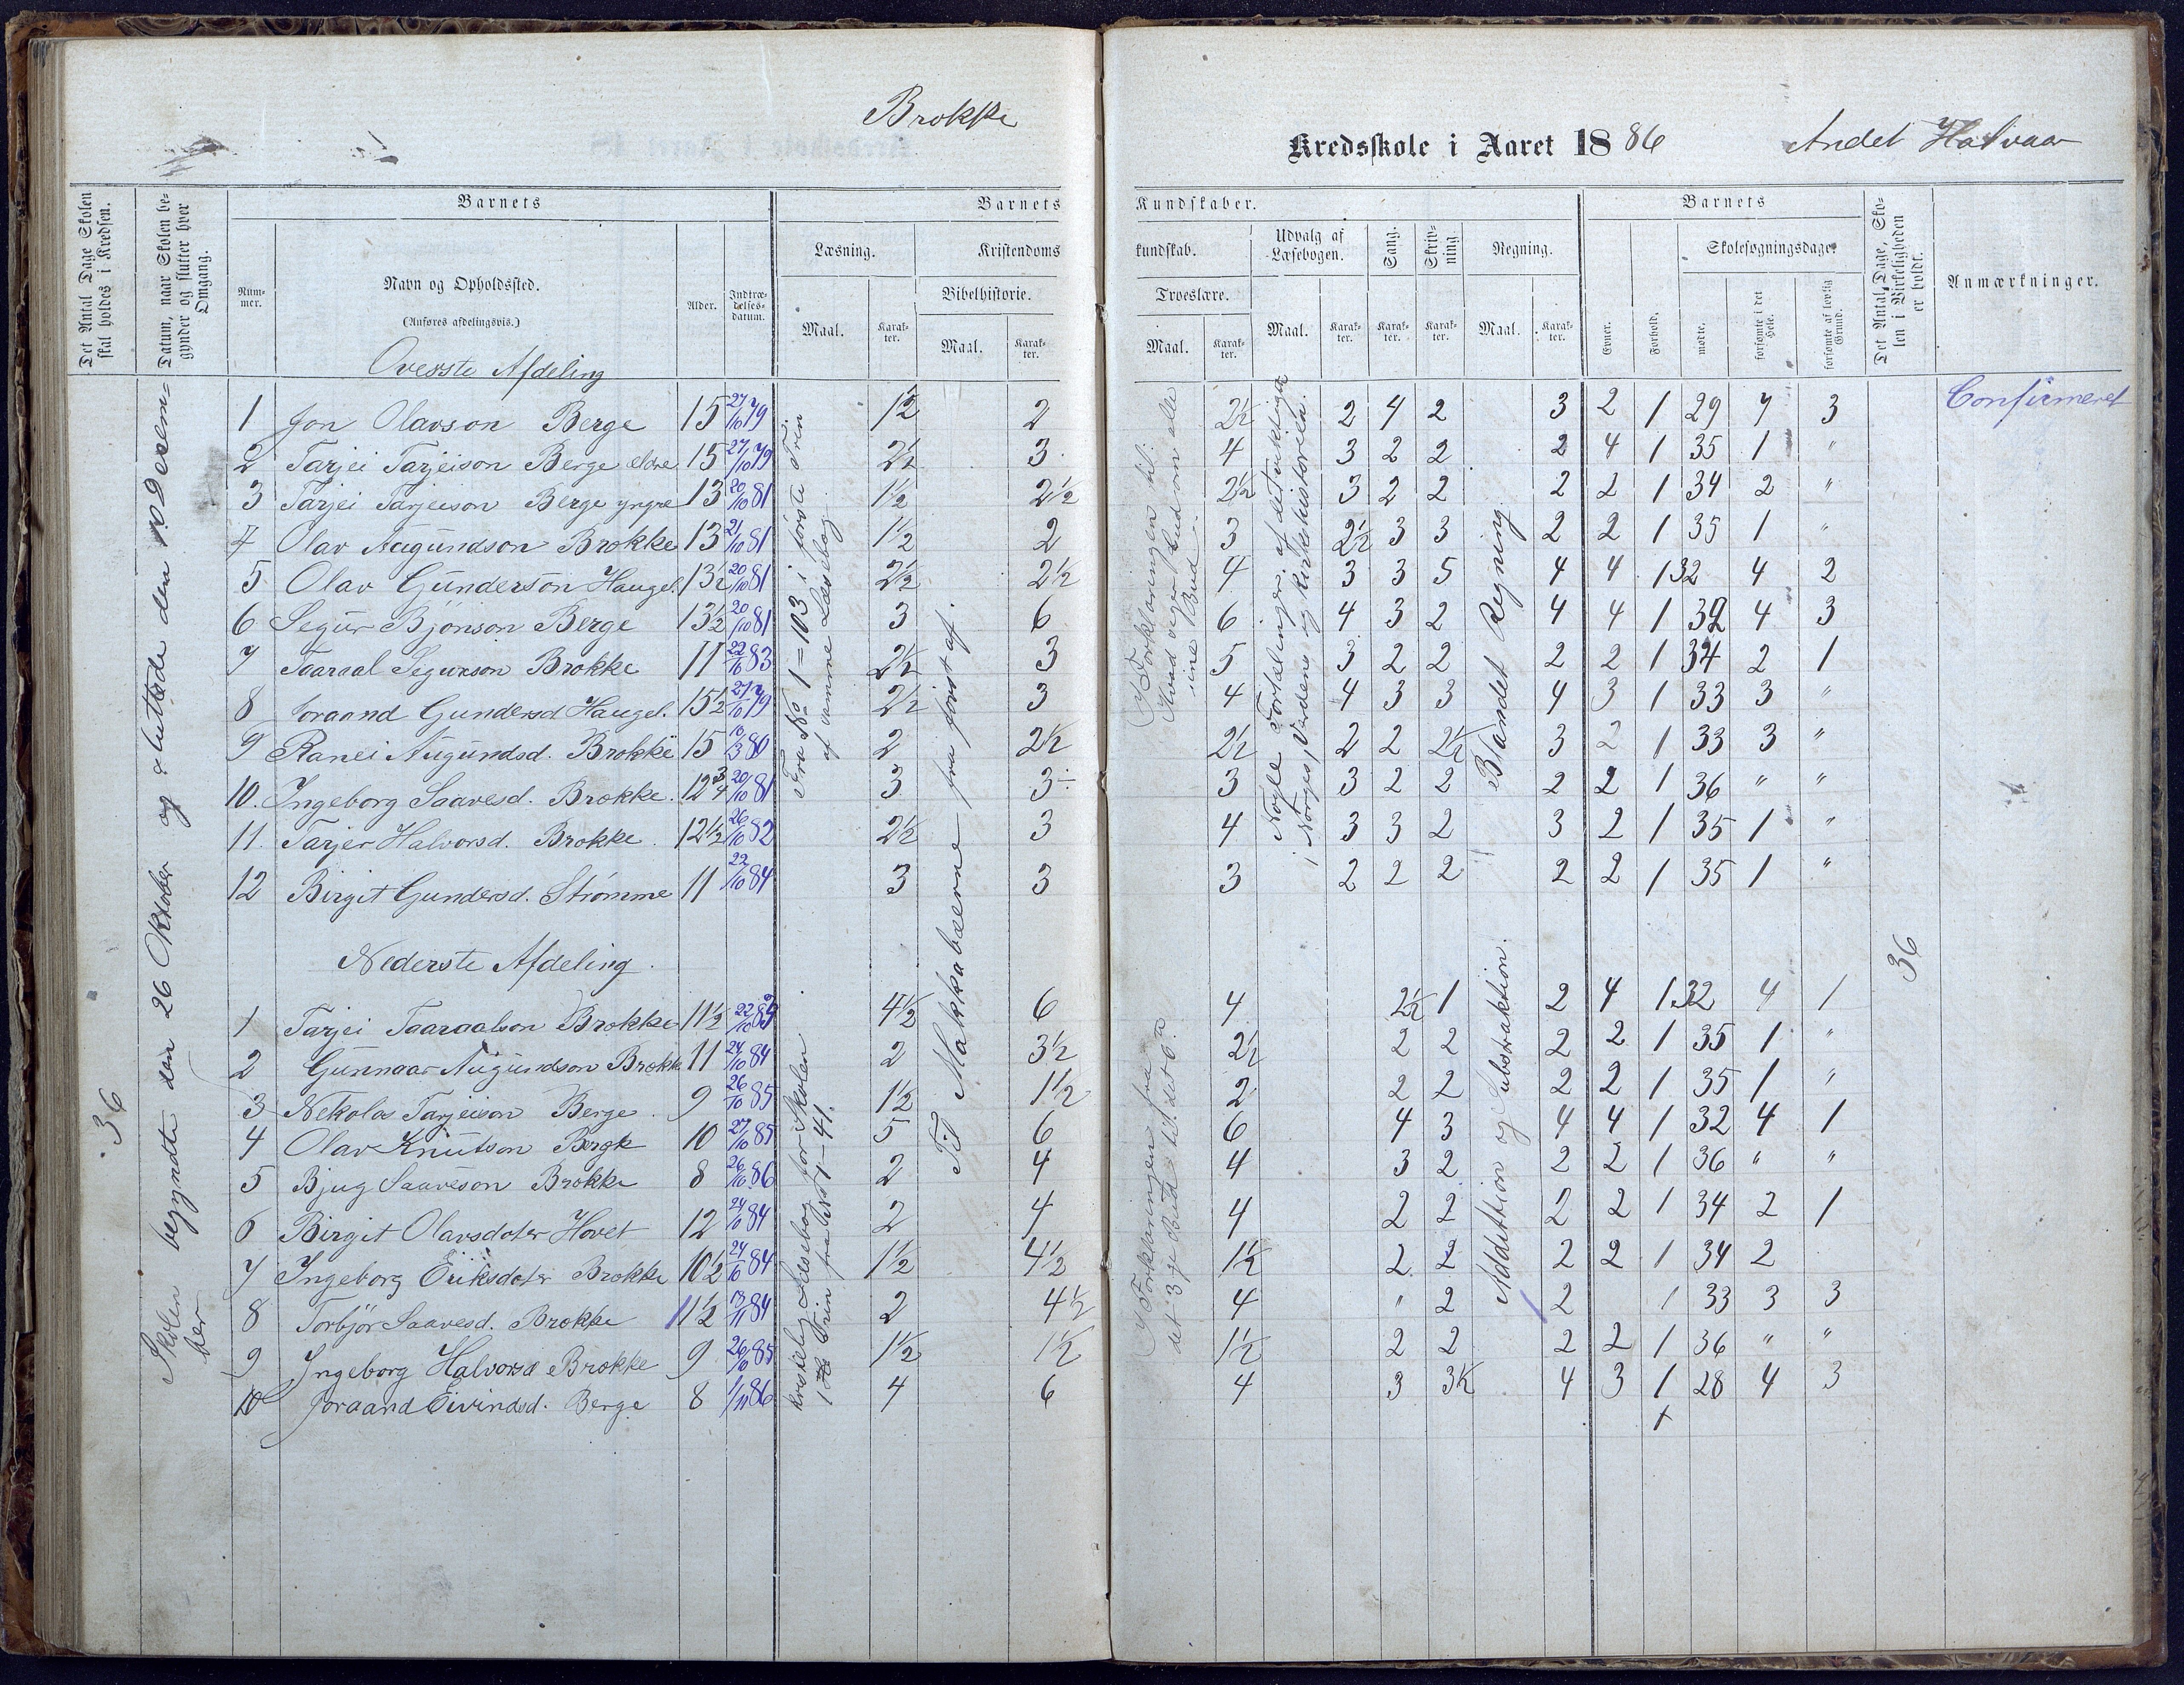 Brokke
Kredsskole i Aaret 1886 Andet Halvaar
Det Antal Dage Skolen skal holdes i Kredsen.
Datum, naar Skolen begynder og slutter hver Omgang.
Barnets
Nummer.
Navn og Opholdssted.
(Anføres afdelingsvis.)
Alder.
Indtrædelses-datum.
Barnets Kundskaber.
Læsning.
Maal.
Karakter.
Kristendomskundskab.
Bibelhistorie.
Maal.
Karakter.
Troeslære.
Maal.
Karakter.
Udvalg af Læsebogen.
Maal.
Karakter.
Sang.
Karakter.
Skrivning.
Karakter.
Regning.
Maal.
Karakter.
Barnets
Evner.
Forhold.
Skolesøgningsdage.
mødte.
forsømte i det Hele.
forsømte af lovlig Grund.
Det Antal Dage, Skolen i Virkeligheden er holdt.
Anmærkninger.
36
Skolen begyndte den 26 Oktober og sluttede den 10 Desember
Øverste Afdeling
1 Jon Olavson Berge 15 27/10 79 12 2 2½ 2 4 2 3 2 1 29 7 3 Confirmeret
2 Tarjei Tarjeison Berge ældre 15 27/10 79 2½ 3 4 3 2 2 2 4 1 35 1 "
3 Tarjei Tarjeison Berge yngre 13 20/10 81 1½ 2½ 2½ 3 2 2 2 2 1 34 2 "
4 Olav Augundson Brokke 13 21/10 81 1½ 2 3 2½ 3 3 2 2 1 35 1 "
5 Olav Gunderson Haugel. 13½ 20/10 81 2½ 2½ 4 3 3 5 4 4 1 32 4 2
6 Segur Bjönson Berge 13½ 20/10 81 3 6 6 4 3 2 4 4 1 32 4 3
7 Taaraal Segurson Brokke 11 22/10 83 2½ 3 5 3 2 2 2 2 1 34 2 1
8 Joraand Gundersd Haugel. 15½ 27/10 79 2½ 3 4 4 3 3 4 3 1 33 3 "
9 Ranei Augundsd. Brokke 15 10/3 80 2 2½ 2½ 2 2 2½ 3 2 1 33 3 "
10. Ingeborg Saavesd. Brokke. 12¾ 20/10 81 3 3÷ 3 3 2 2 2 2 1 36 " "
11. Tarjer Halvorsd. Brokke. 12½ 26/10 82 2½ 3 4 3 3 2 3 2 1 35 1 "
12 Birgit Gundersd. Strømme 11 22/10 84 3 3 3 2 2 2 2 2 1 35 1 "
Fra No 1 = 103 i første Trin
af samme Læsebog
Til Makkabæerne fra først af.
I Forklaringen til:
Hvad siger Gud om alle
sine Bud
Nogle Fortællinger af det viktigste
i Norges, Verdens og Kirkehistorien.
Blandet Regning
36
Nederste Afdeling.
1 Tarjei Taaraalson Brokke 11½ 22/10 83 4½ 6 4 2½ 1 2 4 1 32 4 1
2 Gunnaar Augundson Brokke 11 24/10 84 2 3½ 2½ 2 2 2 2 1 35 1 "
3 Nekolas Tarjeison Berge. 9 26/10 85 1½ 1½ 2 2 2 2 2 1 35 1 "
4 Olav Knutson Berge 10 27/10 85 5 6 6 4 3 4 4 1 32 4 1
5 Bjug Saaveson Brokke 8 26/10 86 2 4 4 3 2 2 2 1 36 " "
6 Birgit Olavsdoter Hovet 12 24/10 84 2 4 4 2 2 2 2 1 34 2 1
7 Ingeborg Eiriksdoter Brokke 10½ 24/10 84 1½ 4½ 1½ 2 2 2 2 1 34 2
8 Torbjör Saavesd. Brokke 11½ 13/11 84 2 4½ 4 " 2 2 1 33 3 3
9 Ingeborg Halvorsd Brokke 9 26/10 85 1½ 1½ 1½ 2 2 2 2 1 36 " "
10 Joraand Eivindsd. Berge 8 1/11 86 4 6 4 3 3½ 4 3 1 28 4 3
kristelig Læsebog for Skolen
1ste Trin fra No 1-41.
I Forklaringen fra
det 3je Bud til det 6te
Addittion og Substraktion.